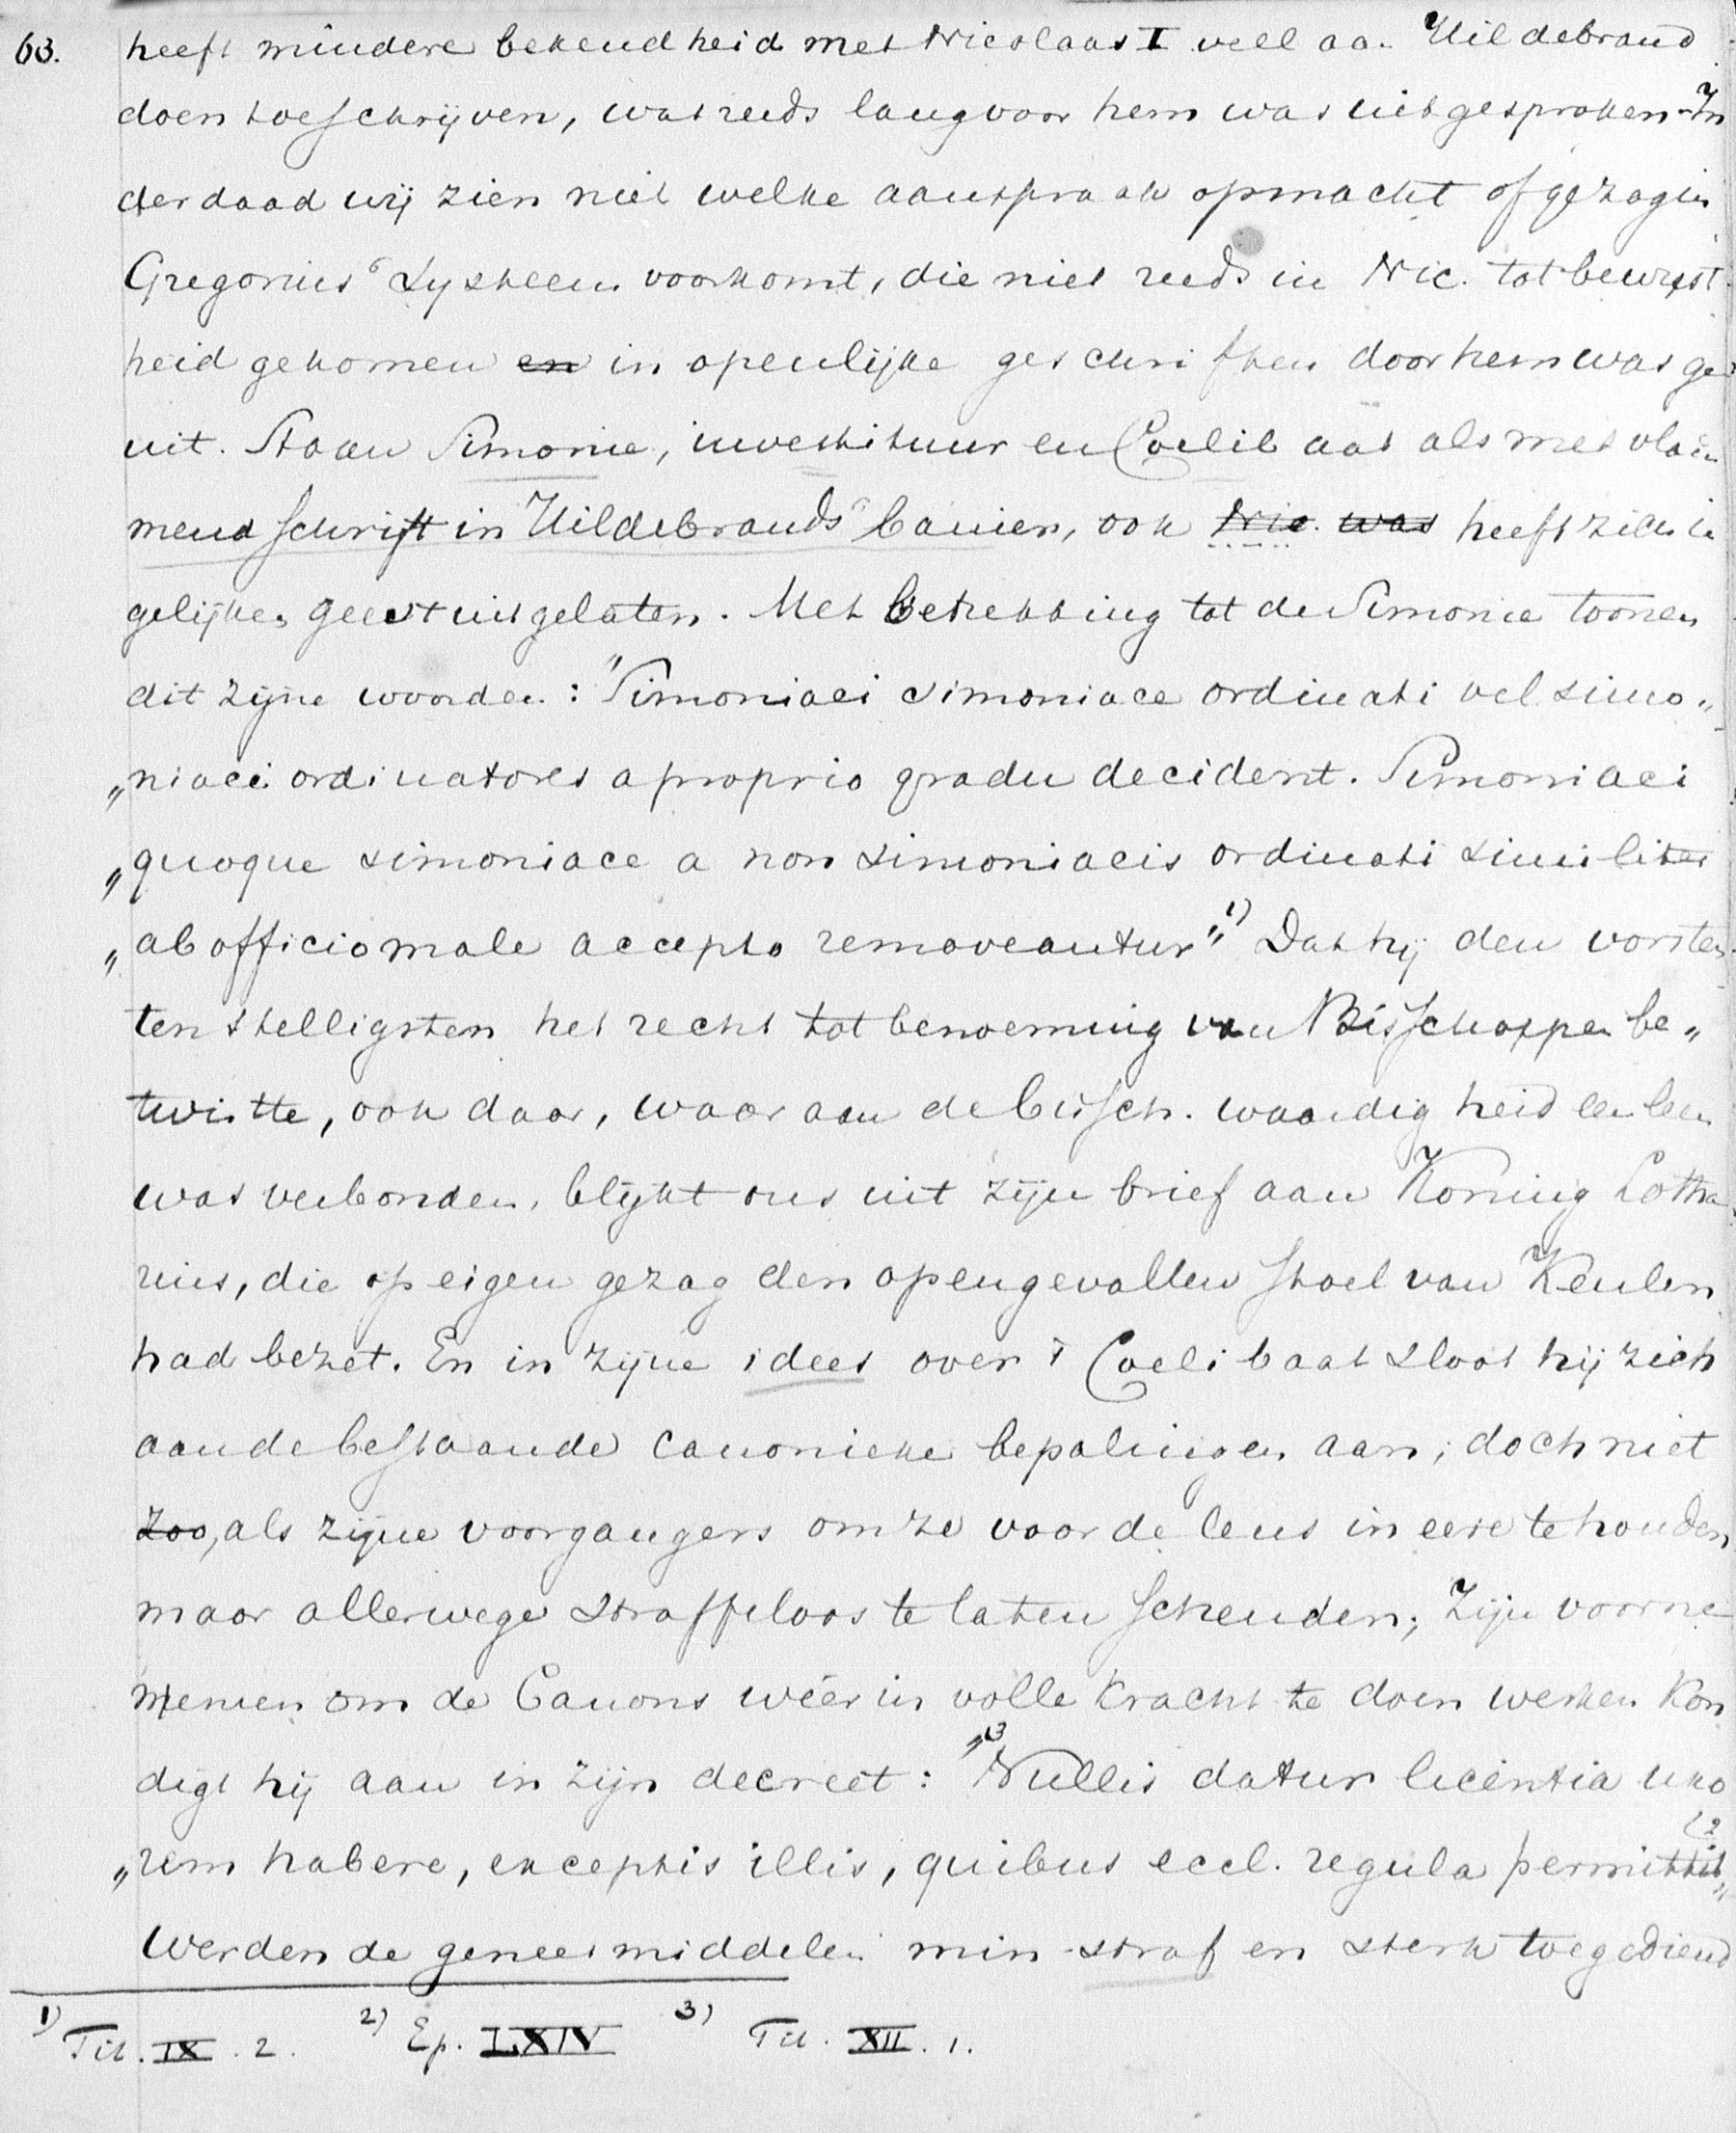 63. heeft mindere bekendheid met Nicolaas I veel aa. Hildebrand
doen toeschrijven, wat reeds lang voor hem was uitgesproken - In
derdaad wij zien niet welke aanspraak op macht of gezag in
Gregorius' systeem voorkomt, die niet reeds in Nic. tot bewust-
heid gekomen en in openlijke geschriften door hem was ge
uit. Staan Simonie, investituur en Coelibaat als met vlam
mend schrift in Hildebrands' banier, ook Nic. was heeft zich in
gelijken geest uitgelaten. Met betrekking tot de Simonie toonen
dit zijne woorden: "Simoniaci simoniace ordinati vel simo„
„niaci ordinatores a proprio gradu decident. Simoniaci
„quoque simoniace a non simoniacis ordinati similiter
„ab officio male accepto removeantur" 1) Dat hij den vorsten
ten stelligsten het recht tot benoeming van Bisschoppen be„
twistte, ook daar, waar aan de bissch. waardigheid een leen
was verbonden, blijkt ons uit zijn brief aan Koning Lotha
rius, die op eigen gezag den opengevallen stoel van Keulen
had bezet. En in zijne idees over 't Coelibaat sloot hij zich
aan de bestaande canonieke bepalingen aan; doch niet
zoo, als zijne voorgangers om ze voor de leus in eere te houden
maar allerwege straffeloos te laten schenden; Zijn voorne
menen om de Canons wéér in volle kracht te doen werken kon
digt hij aan in zijn decreet: "3 Nullis datur licentia uxo
„rem habere, exceptis illis, quibus eccl. regula permittit" (2
Werden de geneesmiddelen min straf en sterk toegediend
1) Tit. IX. 2. 2) Ep. LXIV 3) Tit. XII. 1.